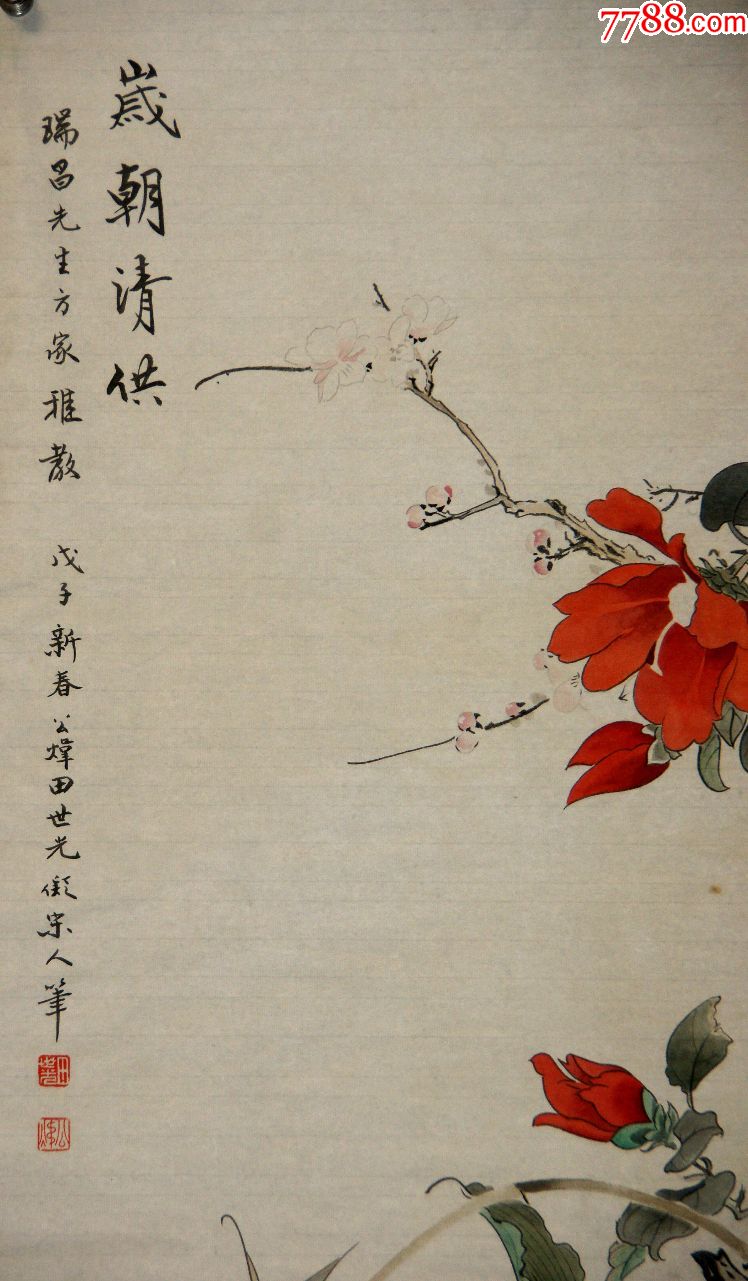 7788.com
歲朝清供
瑞昌先生方家雅教 戊子新春公煒田世光儗宋人筆
田世光
公煒